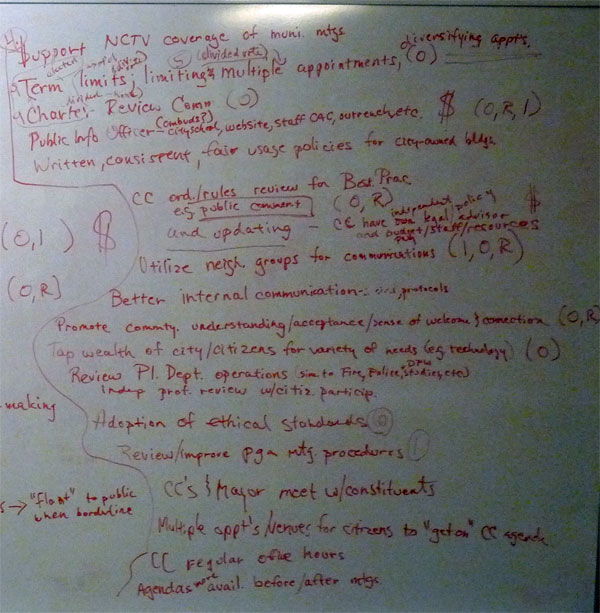 $upport NCTV coverage of muni. mtgs
(divided vote) diversifying appt's,
Term limits; limiting multiple appointments, (0)
Charter Review Comm (0)
(ombuds?)
Public Info Officer - city, school, website, staff CAC, outreach, etc. $ (0, R, 1)
Written, consistent, fair usage policies for city-owned bldgs.
CC ord./rules review for Best Prac
e.g. public comment (0, R)
independent policy $
and updating - CC have legal advisor
and budget/staff/resources
(0, 1) $
Utilize neigh. groups for communications (1, 0, R)
(0, R)
Better internal communication - protocols
Promote commty. understanding/acceptance/sense of welcome & connection (0, R)
Tap wealth of city/citizens for variety of needs (e.g. technology) (0)
Review Pl. Dept. operations (sim. to Fire, Police, DPW studies, etc)
Indep prof. review w/citiz. particip.
making
Adoption of ethical standards 0
Review/improve mtg. procedures 1
CC's & Mayor meet w/constituents
s → "float" to public
when borderline
Multiple appt's/venues for citizens to "get on" CC agenda
CC regular office hours
Agendas more avail. before/after mtgs.